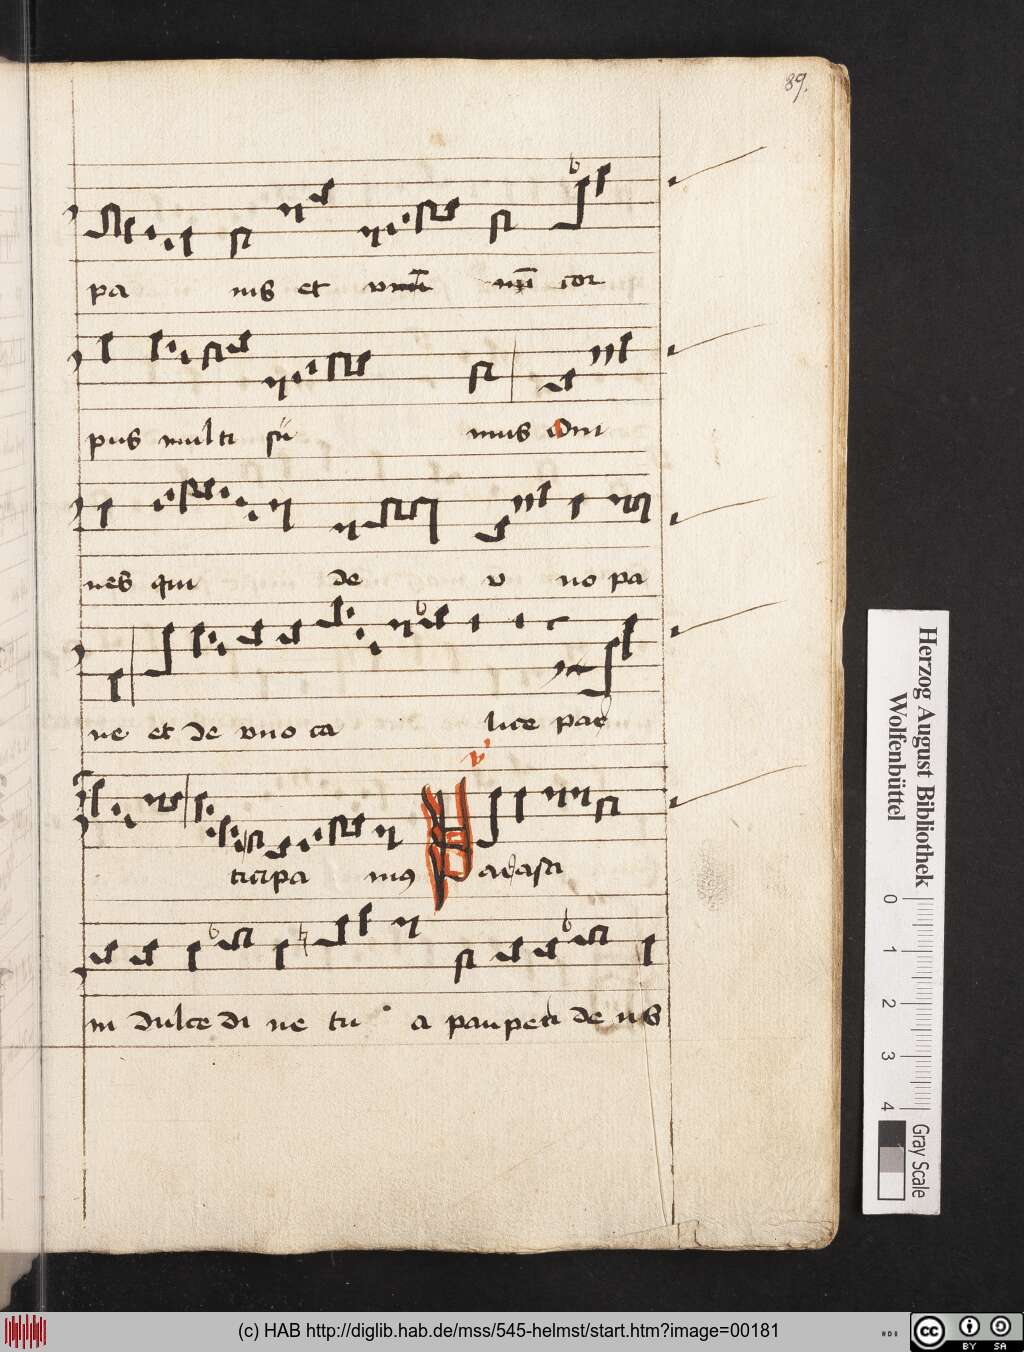 89.
pa nis et unū mul cor
pus multi sū mus Om
nes qui de u no pa
ne et de uno ca lice par
v'
ticipa mus Parasti
in dulce di ne tu a pauperi de us
Herzog August Bibliothek
Wolfenbüttel
0 1 2 3 4
Gray Scale
(c) HAB http://diglib.hab.de/mss/545-helmst/start.htm?image=00181
cc BY SA